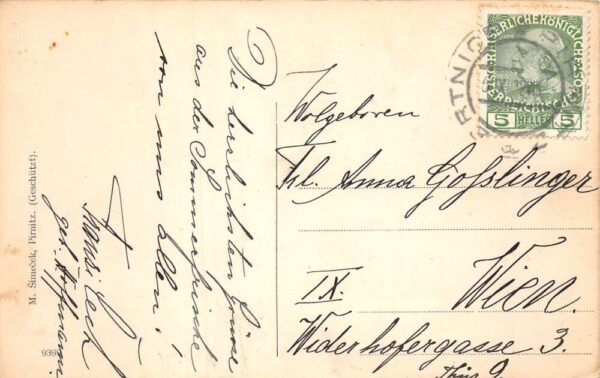 Die herzlichsten Grüsse
aus der Sommerfrische
von uns allen!
Fransi Zech
geb. Hoffmann
M. Šimeček, Pirnitz. (Geschützt).
939
KAISERLICHE KÖNIGLICHE
ÖSTERREICHISCHE
5 HELLER 5
BRTNICE
Wolgeboren
Frl. Anna Gosslinger
IX Wien.
Widerhofergasse 3.
Thür 9.